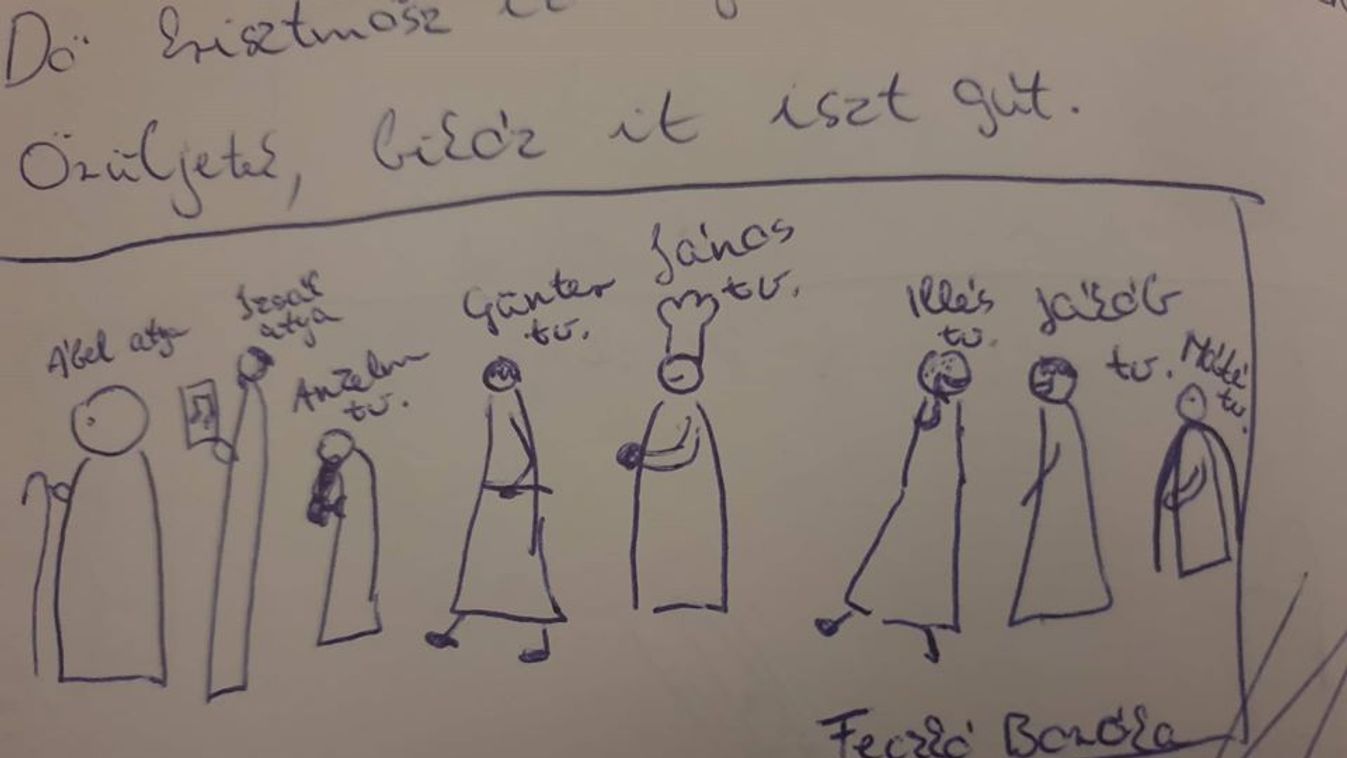 Dö krisztmösz
Örüljetek, bikóz it iszt gút.
Ábel atya
Izsák
atya
Anzelm
tv.
Günter
tv.
János
tv.
Illés
tv.
Jákób
tv.
Máté
tv.
Feczkó Boróka